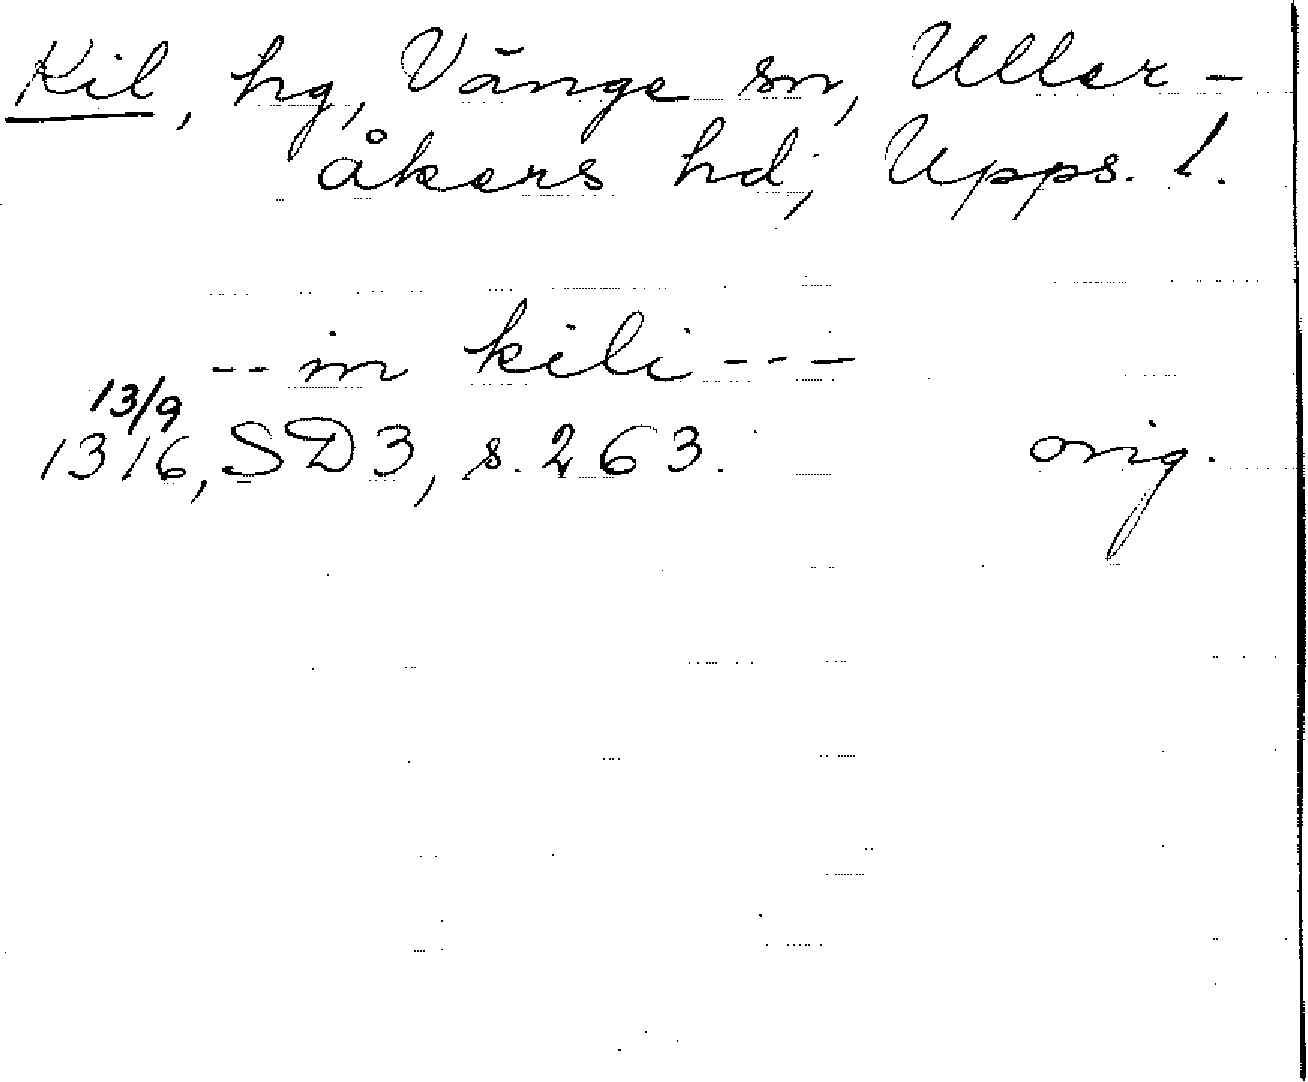 Kil, hg, Vänge sn, Uller-
åkers hd, Upps. l.
-- in kili ---
13/9
1316, SD3, s. 263. orig.